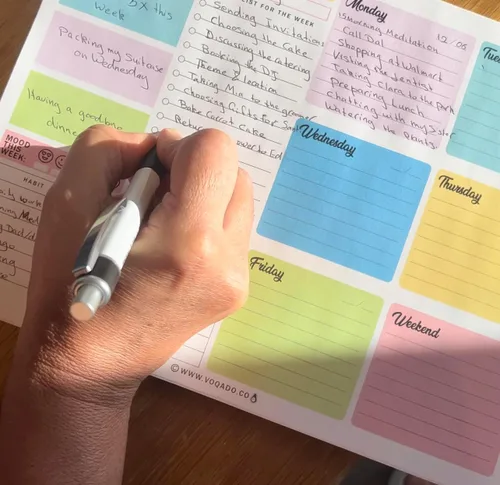 5x this
week
Packing my suitcase
on Wednesday
Having a good
dinner
MOOD
THIS
WEEK:
HABIT
LIST FOR THE WEEK
Sending Invitations
Choosing the Cake
Discussing the catering
Booking the DJ
Theme & location
Taking Min to the groomer
choosing Gifts for
Bake Carrot cake
Monday
12/06
Morning Meditation
Call Dad
Shopping at Walmart
Visiting the dentist
Taking clara to the Park
Preparing Lunch
Chatting with my Sister
Watering the plants
Tue
Wednesday
Thursday
Friday
Weekend
© WWW.VOGADO.CO